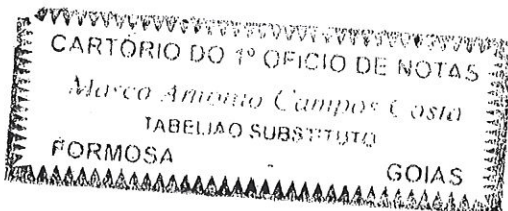 CARTÓRIO DO 1º OFICIO DE NOTAS
Marco Antonio Campos Costa
TABELIAO SUBSTITUTO
FORMOSA - GOIAS